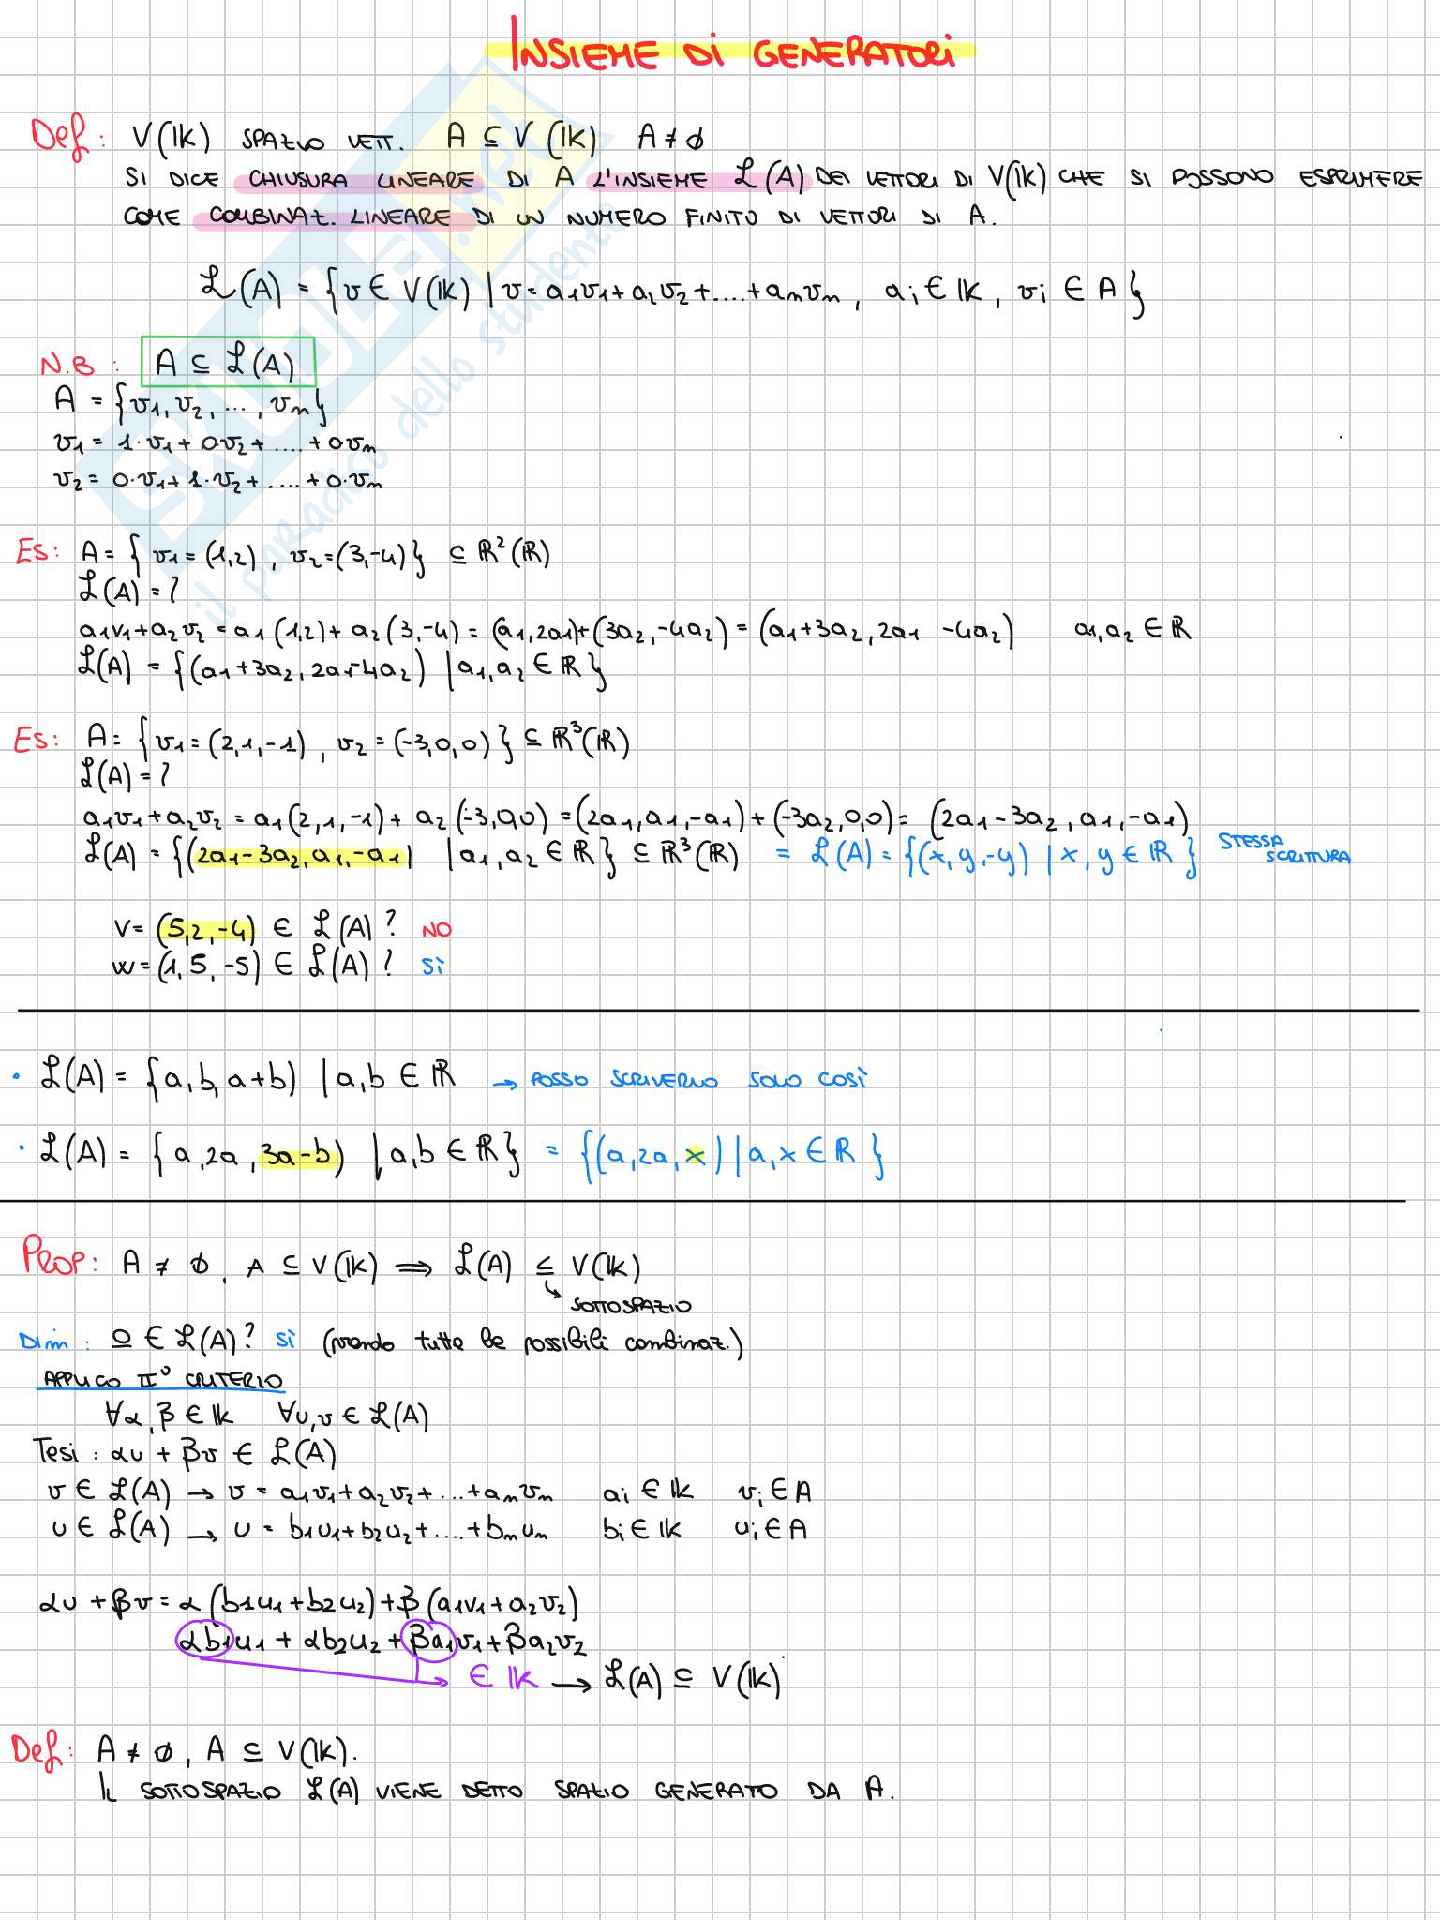 INSIEME DI GENERATORI
Def: V(𝕂) SPAZIO VETT. A ⊆ V(𝕂) A ≠ ∅
SI DICE CHIUSURA LINEARE DI A L'INSIEME ℒ(A) DEI VETTORI DI V(𝕂) CHE SI POSSONO ESPRIMERE
COME COMBINAZ. LINEARE DI UN NUMERO FINITO DI VETTORI DI A.
ℒ(A) = {v ∈ V(𝕂) | v = a₁v₁+a₂v₂+....+aₙvₙ, aᵢ ∈ 𝕂, vᵢ ∈ A}
N.B : A ⊆ ℒ(A)
A = {v₁, v₂, ..., vₙ}
v₁ = 1·v₁ + 0v₂ + .... + 0vₙ
v₂ = 0·v₁ + 1·v₂ + .... + 0·vₙ
Es: A = { v₁ = (1,2) , v₂ = (3,-4)} ⊆ ℝ²(ℝ)
ℒ(A) = ?
a₁v₁+a₂v₂ = a₁(1,2) + a₂(3,-4) = (a₁,2a₁)+(3a₂,-4a₂) = (a₁+3a₂, 2a₁ -4a₂) a₁,a₂ ∈ ℝ
ℒ(A) = {(a₁+3a₂, 2a₁-4a₂) | a₁,a₂ ∈ ℝ}
Es: A = {v₁ = (2,1,-1) , v₂ = (-3,0,0)} ⊆ ℝ³(ℝ)
ℒ(A) = ?
a₁v₁+a₂v₂ = a₁(2,1,-1) + a₂(-3,0,0) = (2a₁,a₁,-a₁) + (-3a₂,0,0) = (2a₁-3a₂, a₁,-a₁)
ℒ(A) = {(2a₁-3a₂, a₁, -a₁) | a₁, a₂ ∈ ℝ} ⊆ ℝ³(ℝ) = ℒ(A) = {(x, y, -y) | x, y ∈ ℝ} STESSA SCRITTURA
V = (5,2,-4) ∈ ℒ(A)? NO
W = (1, 5, -5) ∈ ℒ(A)? SÌ
· ℒ(A) = {a, b, a+b) | a,b ∈ ℝ → POSSO SCRIVERLO SOLO COSÌ
· ℒ(A) = {a, 2a, 3a-b) | a,b ∈ ℝ} = {(a, 2a, x) | a, x ∈ ℝ}
PROP: A ≠ ∅, A ⊆ V(𝕂) ⟹ ℒ(A) ≤ V(𝕂)
↳ SOTTOSPAZIO
Dim: 0 ∈ ℒ(A)? SÌ (prendo tutte le possibili combinaz.)
APPLICO II° CRITERIO
∀α, β ∈ 𝕂 ∀u, v ∈ ℒ(A)
Tesi : αu + βv ∈ ℒ(A)
v ∈ ℒ(A) → v = a₁v₁+a₂v₂+...+aₙvₙ aᵢ ∈ 𝕂 vᵢ ∈ A
u ∈ ℒ(A) → u = b₁u₁+b₂u₂+....+bₘuₘ bᵢ ∈ 𝕂 uᵢ ∈ A
αu + βv = α(b₁u₁+b₂u₂) + β(a₁v₁+a₂v₂)
αb₁u₁ + αb₂u₂ + βa₁v₁ + βa₂v₂
∈ 𝕂 → ℒ(A) ⊆ V(𝕂)
Def: A ≠ ∅, A ⊆ V(𝕂).
IL SOTTOSPAZIO ℒ(A) VIENE DETTO SPAZIO GENERATO DA A.
SKUOLA.net
il paradiso dello studente